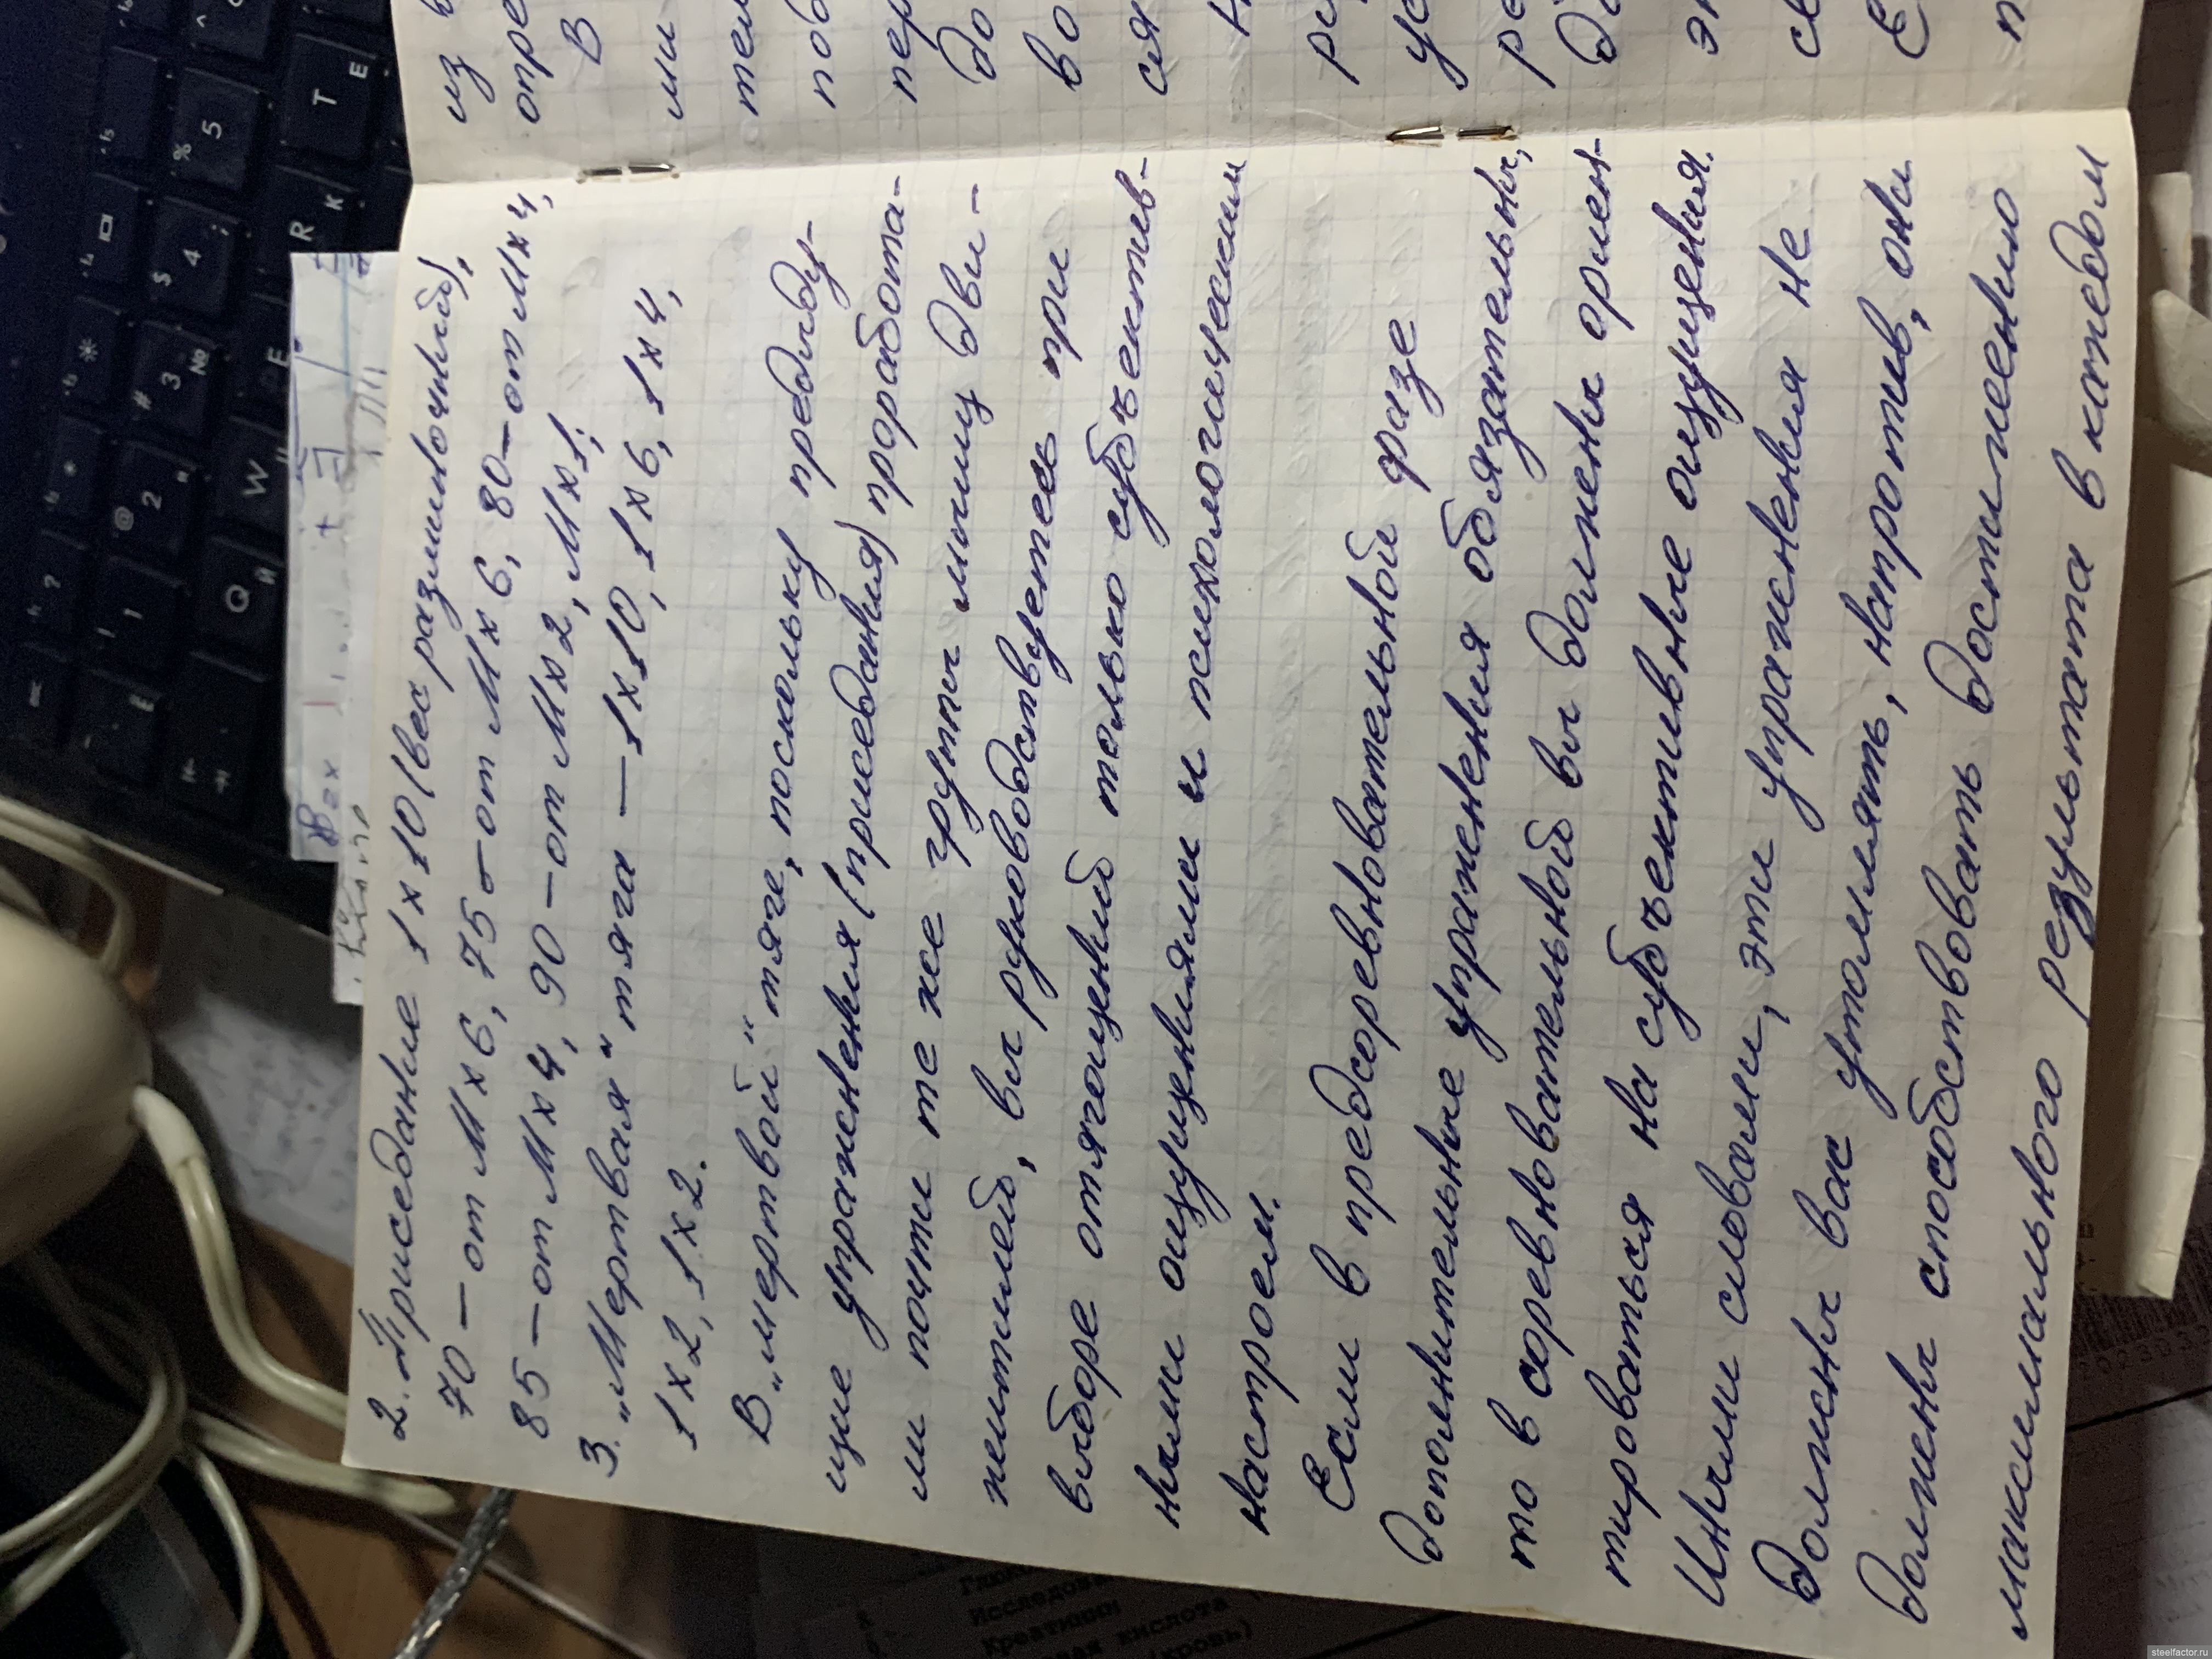 2. Приседание 1х10 (вес разминочный),
70 – от Мх6, 75 – от Мх6, 80 – от Мх4,
85 – от Мх4, 90 – от Мх2, Мх1;
3. „Мертвая" тяга – 1х10, 1х6, 1х4,
1х2, 1х2.
В „мертвой" тяге, поскольку предыду-
щие упражнения (приседания) проработа-
ли почти те же группы мышц дви-
жителей, вы руководствуетесь при
выборе отягощений только субъектив-
ными ощущениями и психологическим
настроем.
Если в предсоревновательной фазе
дополнительные упражнения обязательны,
то в соревновательной вы должны ориен-
тироваться на субъективные ощущения.
Иными словами, эти упражнения не
должны вас утомлять, напротив, они
должны способствовать достижению
максимального результата в каждом
из
опре
В
ми
тел
поб
пер
до
во
ся
Q Й
W
E
R К
T Е
1
@ 2 "
# 3 №
$ 4 ;
% 5
Исследов
Креатинин
кислота
(кровь)
steelfactor.ru